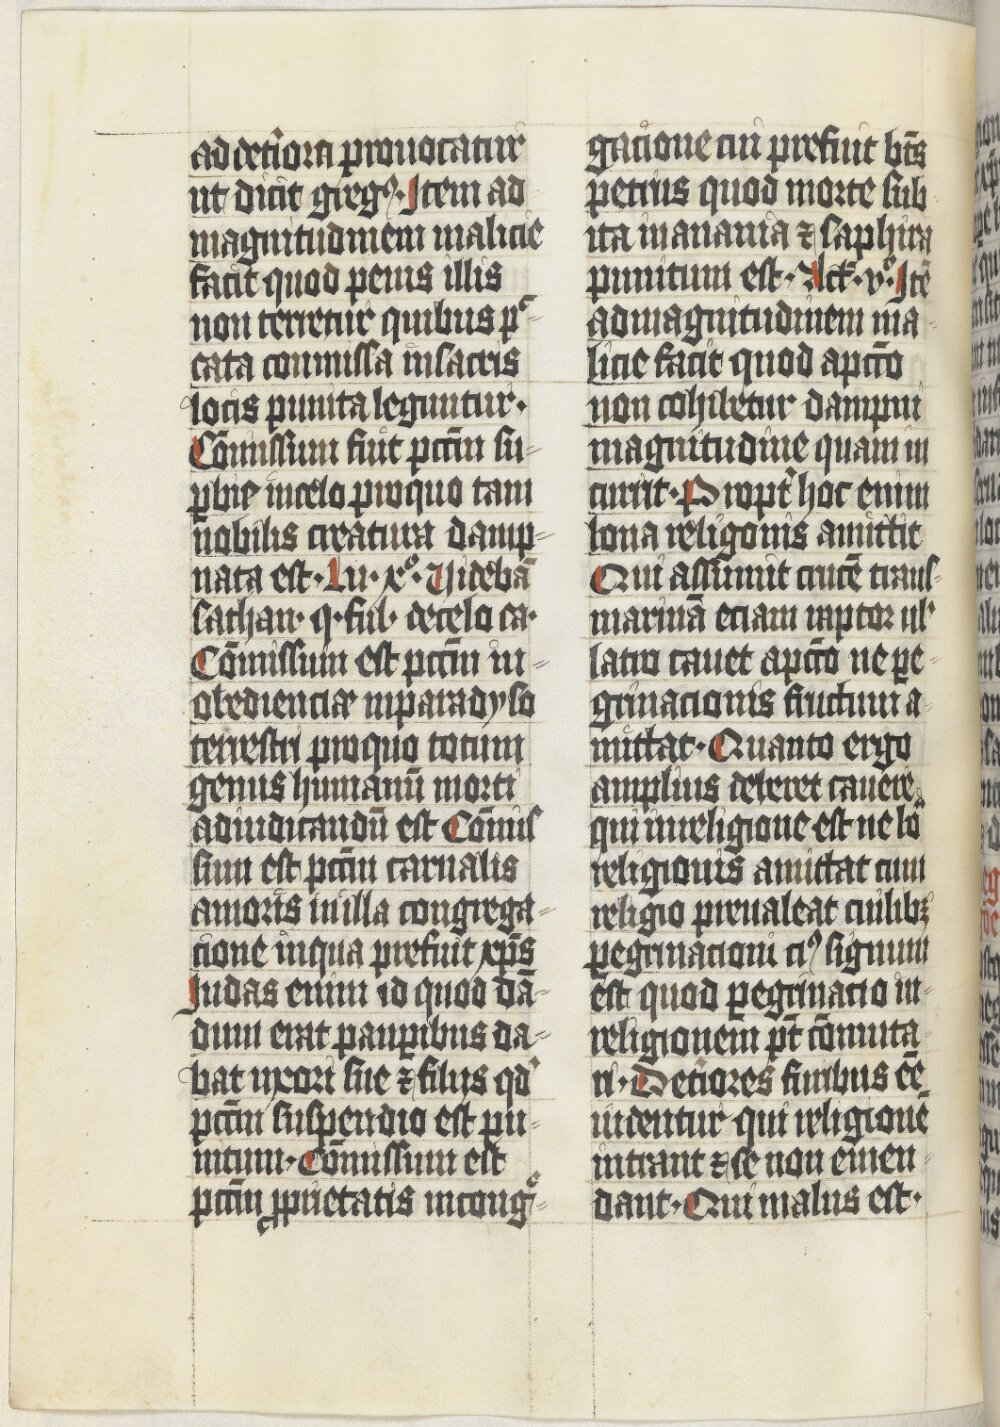 ad det'iora prouocatur
ut dicit greg9. Item ad
magnitudinem malicie
facit quod penis illis
non terretur quibus pc-
cata commissa in sacris
locis punita leguntur.
Cōmissum fuit pctm̄ su-
pbie in celo pro quo tam
nobilis creatura damp-
nata est. Lu. xo. Videbā
sathan. q. ful. de celo ca.
Cōmissum est pctm̄ in-
obediencie in paradyso
terrestri pro quo totum
genus humanū morti
adiudicandū est Cōmis
sum est pctm̄ carnalis
amoris in illa congrega-
cione in qua prefuit xp̄s
Judas enim id quod dā-
dum erat paupibus da-
bat uxori sue ⁊ filiis qd'
pctm̄ suspendio est pu
nitum. Cōmissum est
pctm̄ ꝓprietatis in congr-
gacione cui prefuit bt̄s
petrus quod morte sub
ita in anania ⁊ saphira
punitum est. Act. vo. Itē
ad magnitudinem ma-
licie facit quod apctō
non cohibetur dampni
magnitudine quam in
currit. Propt' hoc enim
bona religionis amittit
Qui assumit crucē trans-
marinā eciam raptor ul'
latro cauet apctō ne pe-
grinacionis fructum a-
mittat. Quanto ergo
amplius deberet cauere
qui in religione est ne bō
religionis amittat cum
religio preualeat cuilibꝫ
pegrinacioni ci9 signum
est quod pegrinacio in-
religionem pt̄ cōmuta-
ri. Det'iores furibus eē
uidentur qui religionē
intrant ⁊ se non emen-
dant. Qui malus est.